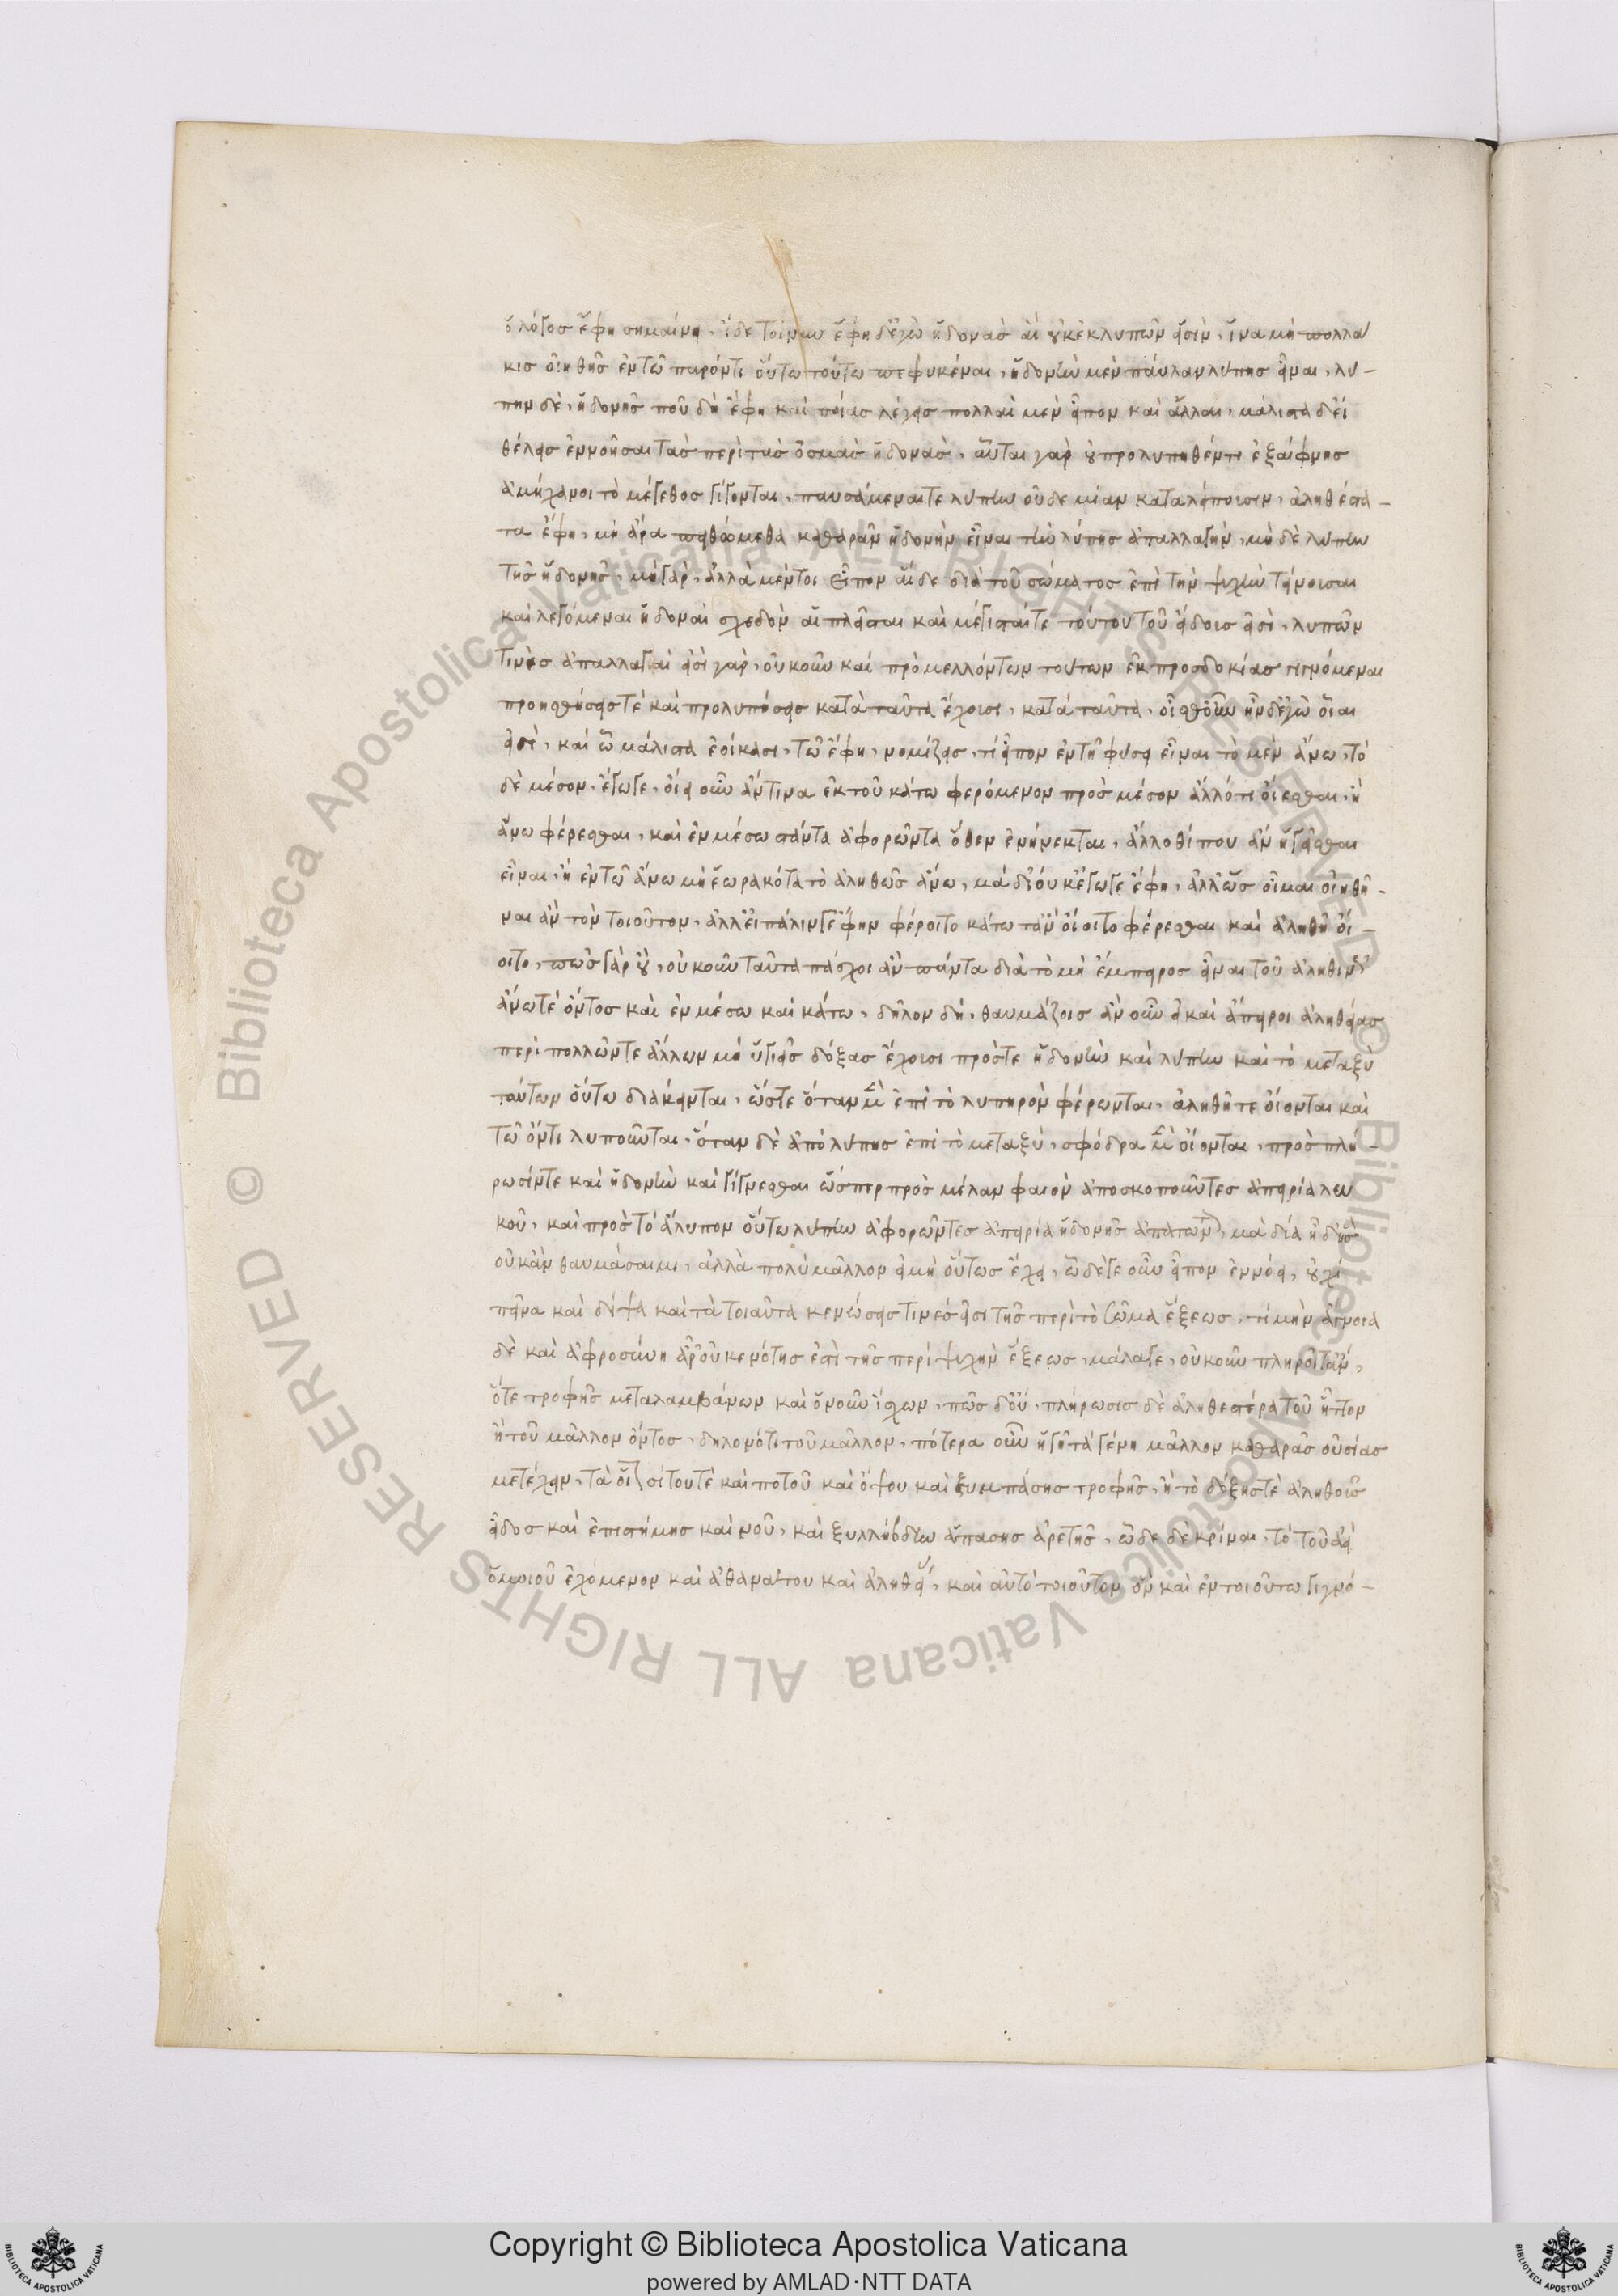 ὁ λόγος ἔφη σημαίνει. ἴδε τοίνυν ἔφην δ' ἐγὼ ἡδονὰς αἳ οὐκ ἐκ λυπῶν εἰσίν, ἵνα μὴ πολλά
κις οἰηθῇς ἐν τῷ παρόντι οὕτω τοῦτο πεφυκέναι, ἡδονὴν μὲν παῦλαν λύπης εἶναι, λύ-
πην δὲ, ἡδονῆς ποῦ δὴ ἔφη καὶ ποίας λέγεις πολλαὶ μὲν εἶπον καὶ ἄλλαι, μάλιστα δ' εἰ
θέλεις ἐννοῆσαι τὰς περὶ τὰς ὀσμὰς ἡδονάς. αὗται γὰρ οὐ προλυπηθέντι ἐξαίφνης
ἀμήχανοι τὸ μέγεθος γίγονται, παυσάμεναί τε λύπην οὐδεμίαν καταλείπουσιν, ἀληθέστα-
τα ἔφη, μὴ ἄρα πειθώμεθα καθαρὰν ἡδονὴν εἶναι τὴν λύπης ἀπαλλαγήν, μὴ δὲ λύπην
τῆς ἡδονῆς, μὴ γάρ, ἀλλὰ μέντοι εἶπον αἵ γε διὰ τοῦ σώματος ἐπὶ τὴν ψυχὴν τείνουσαι
καὶ λεγόμεναι ἡδοναὶ σχεδὸν αἱ πλεῖσται καὶ μέγισταί τε τούτου τοῦ εἴδους εἰσὶ, λυπῶν
τινὲς ἀπαλλαγαὶ εἰσὶ γάρ, οὐκοῦν καὶ πρὸ μελλόντων τούτων ἐκ προσδοκίας γιγνόμεναι
προησθήσεις τέ καὶ προλυπήσεις κατὰ ταῦτα ἔχουσι, κατὰ ταῦτα. οἶσθ' οὖν ἦν δ' ἐγὼ οἷαι
εἰσὶ, καὶ ᾧ μάλιστα ἐοίκασι, τῷ ἔφη, νομίζεις, τί εἶπον ἐν τῇ φύσει εἶναι τὸ μὲν ἄνω, τὸ
δὲ μέσον, ἔγωγε, οἴει οὖν ἄν τινα ἐκ τοῦ κάτω φερόμενον πρὸς μέσον ἄλλό τι οἴεσθαι, ἢ
ἄνω φέρεσθαι, καὶ ἐν μέσω στάντα ἀφορῶντα ὅθεν ἐνήνεκται, ἄλλοθί που ἂν ἡγεῖσθαι
εἶναι, ἢ ἐν τῷ ἄνω μὴ ἑωρακότα τὸ ἀληθῶς ἄνω, μὰ δί' οὐκ ἔγωγε ἔφη, ἄλλως οἶμαι οἰηθῆ-
ναι ἂν τὸν τοιοῦτον, ἀλλ' εἰ πάλιν γε ἔφην φέροιτο κάτω τ' ἂν οἴοιτο φέρεσθαι καὶ ἀληθῆ οἴ-
οιτο, πῶς γὰρ οὔ, οὐκοῦν ταῦτα πάσχοι ἂν πάντα διὰ τὸ μὴ ἔμπειρος εἶναι τοῦ ἀληθινοῦ
ἄνω τὲ ὄντος καὶ ἐν μέσω καὶ κάτω, δῆλον δή, θαυμάζοις ἂν οὖν εἰ καὶ ἄπειροι ἀληθείας
περὶ πολλῶν τε ἄλλων μὴ ὑγιεῖς δόξας ἔχουσι πρός τε ἡδονὴν καὶ λύπην καὶ τὸ μεταξὺ
τούτων οὕτω διάκεινται, ὥστε ὅταν μὲν ἐπὶ τὸ λυπηρὸν φέρωνται, ἀληθῆ τε οἴονται καὶ
τῷ ὄντι λυποῦνται, ὅταν δὲ ἀπὸ λύπης ἐπὶ τὸ μεταξύ, σφόδρα μὲν οἴονται, πρὸς πλη-
ρώσει τε καὶ ἡδονὴν καὶ γίγνεσθαι ὥσπερ πρὸς μέλαν φαιὸν ἀποσκοποῦντες ἀπειρία λευ
κοῦ, καὶ πρὸς τὸ ἄλυπον οὕτω λύπην ἀφορῶντες ἀπειρία ἡδονῆς ἀπατῶνται, μὰ δία ἦ δ' ὃς
οὐκ ἂν θαυμάσαιμι, ἀλλὰ πολὺ μᾶλλον εἰ μὴ οὕτως ἔχει, ὧδέ γε οὖν εἶπον ἐννόει, οὐχὶ
πεῖνα καὶ δίψα καὶ τὰ τοιαῦτα κενώσεις τινές εἰσι τῆς περὶ τὸ σῶμα ἕξεως, τί μὴν ἄγνοια
δὲ καὶ ἀφροσύνη ἆρ' οὐ κενότης ἐστὶ τῆς περὶ ψυχὴν ἕξεως, μάλα γε, οὐκοῦν πληροῖτ' ἂν,
ὅτε τροφῆς μεταλαμβάνων καὶ ὁ νοῦν ἴσχων, πῶς δ' οὔ, πλήρωσις δὲ ἀληθεστέρα τοῦ ἧττον
ἢ τοῦ μᾶλλον ὄντος, δηλονότι τοῦ μᾶλλον, πότερα οὖν ἡγῇ τὰ γένη μᾶλλον καθαρᾶς οὐσίας
μετέχειν, τὰ οἷον σίτου τὲ καὶ ποτοῦ καὶ ὄψου καὶ ξυμπάσης τροφῆς, ἢ τὸ δόξης τὲ ἀληθοῦς
εἶδος καὶ ἐπιστήμης καὶ νοῦ, καὶ ξυλλήβδην ἁπάσης ἀρετῆς, ὧδε δὲ κρῖναι, τὸ τοῦ ἀεὶ
ὁμοίου ἐχόμενον καὶ ἀθανάτου καὶ ἀληθείας, καὶ αὐτὸ τοιοῦτον ὂν καὶ ἐν τοιούτω γιγνό-
Copyright © Biblioteca Apostolica Vaticana
powered by AMLAD·NTT DATA